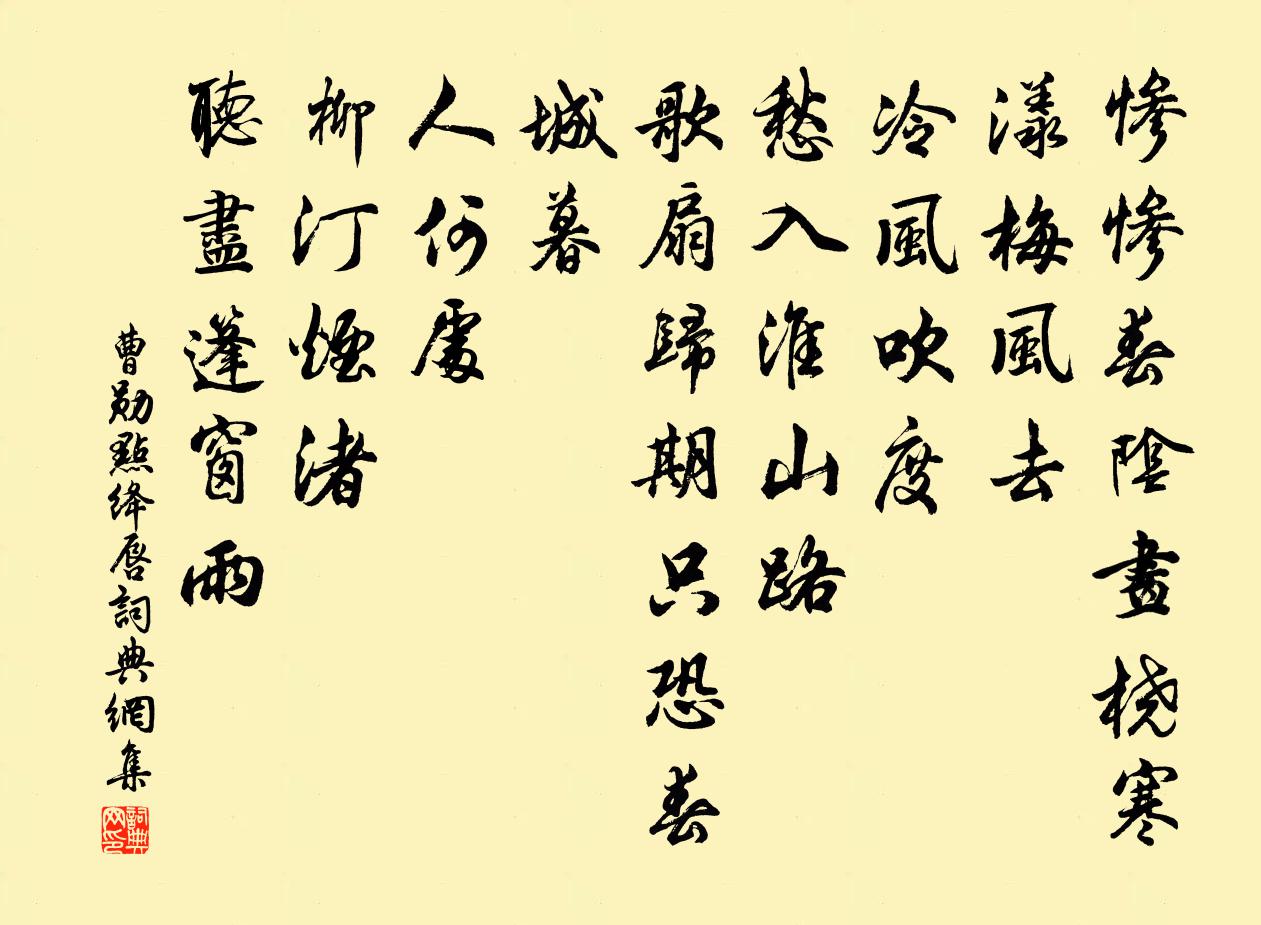 慘慘春陰畫橈寒
漾梅風去
冷風吹度
愁入淮山路
歌扇歸期只恐春
城暮
人何處
柳汀煙渚
聽盡篷窗雨
曹勛點絳唇詞典網集
詞典网印